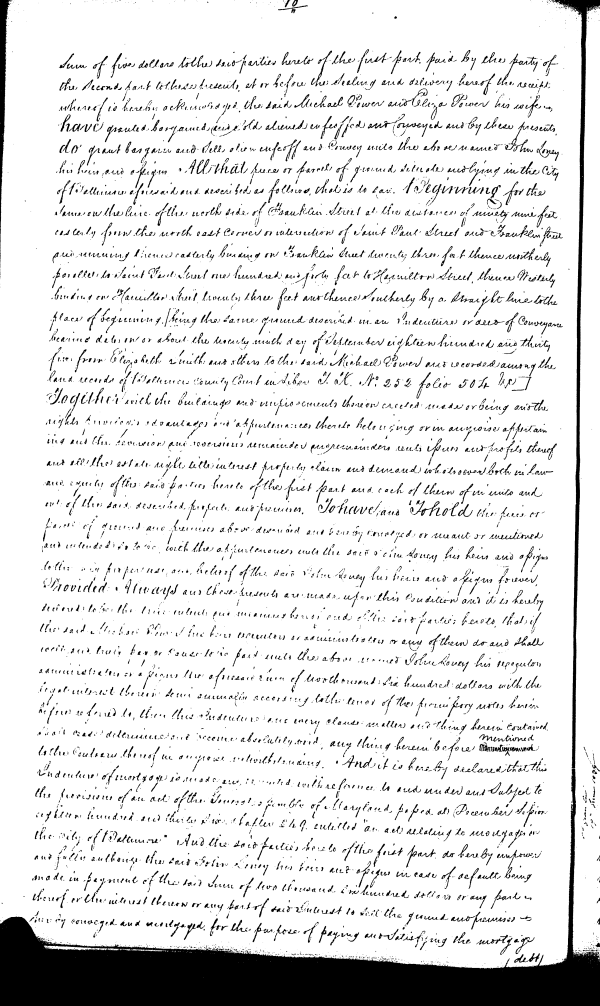 Sum of five dollars to the said parties hereto of the first part, paid by the party of
the second part to these presents, at or before the sealing and delivery hereof the receipt
whereof is hereby acknowledged, the said Michael Power and Eliza Power his wife,
have granted bargained and sold aliened enfeoffed and Conveyed and by these presents
do grant bargain and sell alien enfeoff and Convey unto the above named John Lovey
his heirs and assigns All that piece or parcel of ground situate and lying in the City
of Baltimore aforesaid and described as follows, that is to say. Beginning for the
same on the line of the north side of Franklin Street at the distance of ninety nine feet
easterly from the north east Corner or intersection of Saint Paul Street and Franklin Street
and running thence easterly binding on Franklin Street twenty three feet thence northerly
parallel to Saint Paul Street one hundred and forty feet to Hamilton Street, thence Westerly
binding on Hamilton Street twenty three feet and thence Southerly by a straight line to the
place of beginning, [being the same ground described in an Indenture or deed of Conveyance
bearing date on or about the twenty ninth day of September eighteen hundred and thirty
five from Elizabeth Smith and others to the said Michael Power and recorded among the
land records of Baltimore County Court in Liber T. K. No. 252 folio 504 &c]
Together with the buildings and improvements thereon erected made or being and the
rights privileges advantages and appurtenances thereto belonging or in anywise appertain
ing and the reversion and reversions remainder and remainders rents issues and profits thereof
and all the estate right title interest property claim and demand whatsoever both in law
and equity of the said parties hereto of the first part and each of them of in unto and
out of the said described property and premises, To have, and To hold the piece or
parcel of ground and premises above described and hereby conveyed or meant or mentioned
and intended so to be, with the appurtenances unto the said John Lovey his heirs and assigns
to the only proper use and behoof of the said John Lovey his heirs and assigns forever,
Provided Always and these presents are made upon this Condition and it is hereby
declared to be the true intent and meaning hereof and of the said parties hereto, that if
the said Michael Power his heirs executors or administrators or any of them do and shall
well and truly pay or cause to be paid unto the above named John Lovey his executors
administrators or assigns the aforesaid sum of two thousand six hundred dollars with the
legal interest thereon semi annually according to the tenor of the promissory notes herein
before referred to, then this Indenture and every clause matter and thing herein contained
shall cease determine and become absolutely void, any thing herein before mentioned
to the contrary thereof in anywise notwithstanding. And it is hereby declared that this
Indenture of mortgage is made and executed with reference to and under and Subject to
the provisions of an act of the General assembly of Maryland, passed at December Session
eighteen hundred and thirty Six Chapter 249, entitled "an act relating to mortgages in
the City of Baltimore" And the said parties hereto of the first part, do hereby empower
and fully authorize the said John Lovey his heirs and assigns in case of default being
made in payment of the said sum of two thousand six hundred dollars or any part
thereof or the interest thereon or any part of said Interest to sell the ground and premises
hereby conveyed and mortgaged, for the purpose of paying and satisfying the mortgage
debt